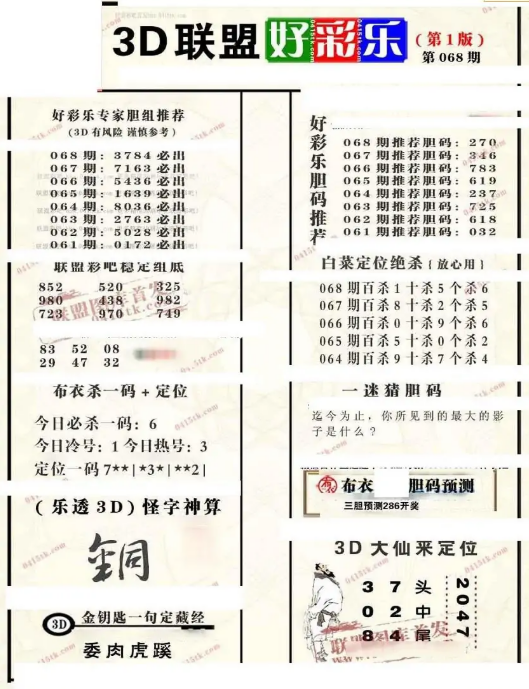 3D联盟好彩乐
(第1版)
第068期
好彩乐专家胆组推荐
(3D有风险 谨慎参考)
068期: 3784必出
067期: 7163必出
066期: 5436必出
065期: 1639必出
064期: 8036必出
063期: 2763必出
062期: 5028必出
061期: 0172必出
联盟彩吧稳定组底
852 520 325
980 438 982
723 970 749
83 52 08
29 47 32
布衣杀一码+定位
今日必杀一码: 6
今日冷号: 1 今日热号: 3
定位一码7**|*3*|**2|
(乐透3D)怪字神算
金同
3D
金钥匙一句定藏经
委肉虎蹊
好彩乐胆码推荐
068期推荐胆码: 270
067期推荐胆码: 346
066期推荐胆码: 783
065期推荐胆码: 619
064期推荐胆码: 237
063期推荐胆码: 725
062期推荐胆码: 618
061期推荐胆码: 032
白菜定位绝杀{放心用}
068期百杀1十杀5个杀6
067期百杀8十杀2个杀5
066期百杀0十杀9个杀6
065期百杀5十杀0个杀2
064期百杀9十杀7个杀4
一迷猜胆码
迄今为止, 你所见到的最大的影
子是什么?
布衣 胆码预测
三胆预测286开奖
3D大仙来定位
3 7 头
0 2 中
8 4 尾
2047
联盟图库首发
0415tk.com